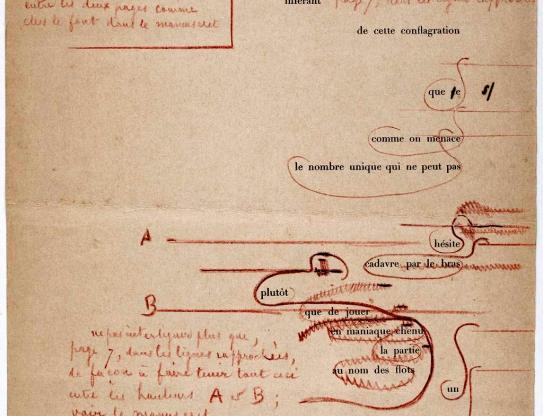 entre les deux pages comme
elles le font dans le manuscrit
inférant
page 7, dans les lignes
de cette conflagration
que se s/
comme on menace
le nombre unique qui ne peut pas
A
hésite
cadavre par le bras
plutôt
B
que de jouer
en maniaque chenu
la partie
au nom des flots
un
ne pas interligner plus que,
page 7, dans les lignes rapprochées,
de façon à faire tenir tout ceci
entre les hauteurs A et B ;
voir le manuscrit